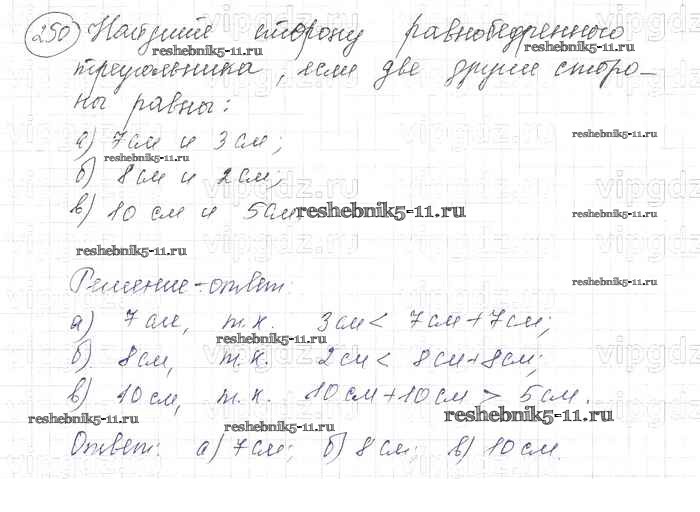 250 Найдите сторону равнобедренного
reshebnik5-11.ru
reshebnik5-11.ru
треугольника, если две другие сторо-
ны равны:
а) 7 см и 3 см;
reshebnik5-11.ru
reshebnik5-11.ru
б) 8 см и 2 см;
в) 10 см и 5 см.
reshebnik5-11.ru
reshebnik5-11.ru
reshebnik5-11.ru
Решение-ответ:
reshebnik5-11.ru
а) 7 см, т.к. 3 см < 7 см + 7 см;
reshebnik5-11.ru
б) 8 см, т.к. 2 см < 8 см + 8 см;
в) 10 см, т.к. 10 см + 10 см > 5 см.
reshebnik5-11.ru
reshebnik5-11.ru
reshebnik5-11.ru
Ответ: а) 7 см; б) 8 см; в) 10 см.